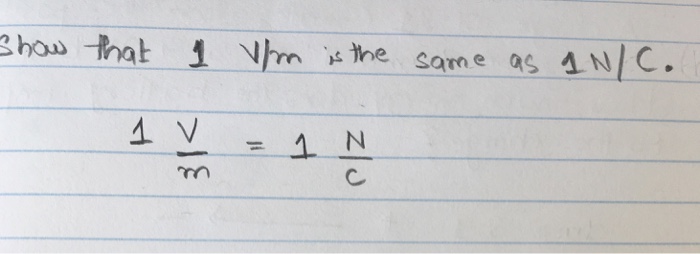 Show that 1 V/m is the same as 1 N/C.
1 V/m = 1 N/C